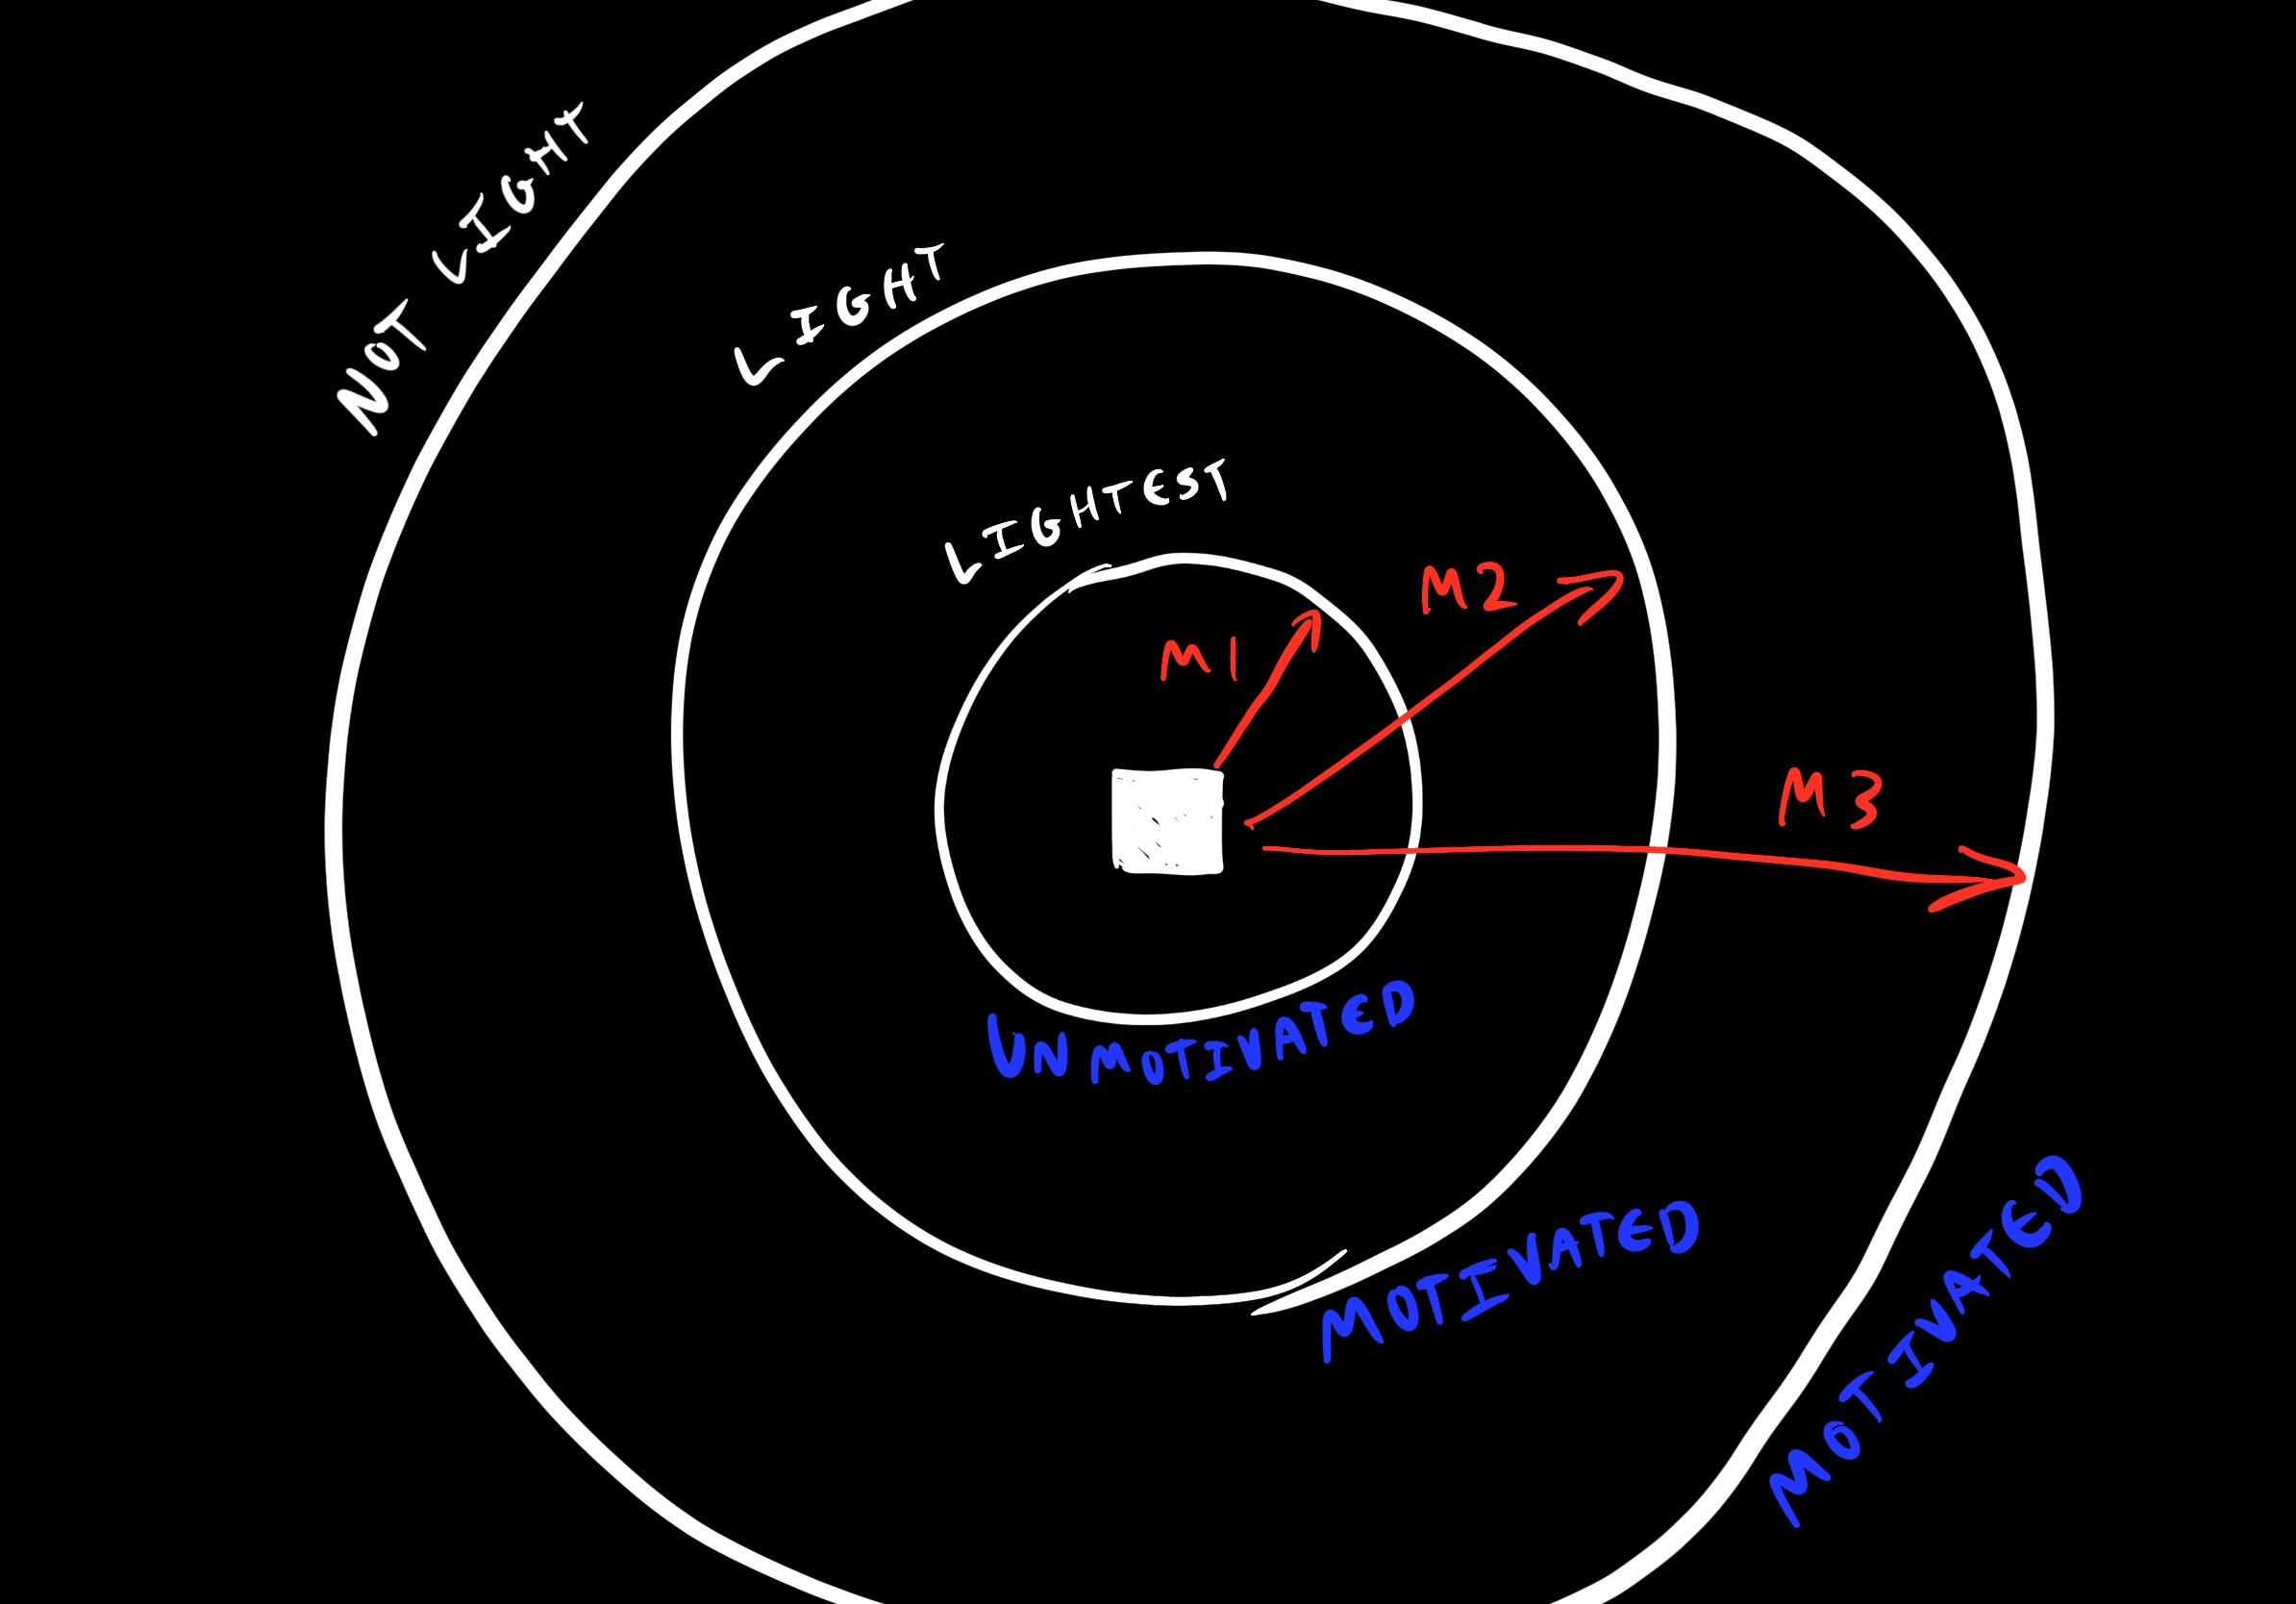 NOT LIGHT
LIGHT
LIGHTEST
M1
M2
M3
UNMOTIVATED
MOTIVATED
MOTIVATED